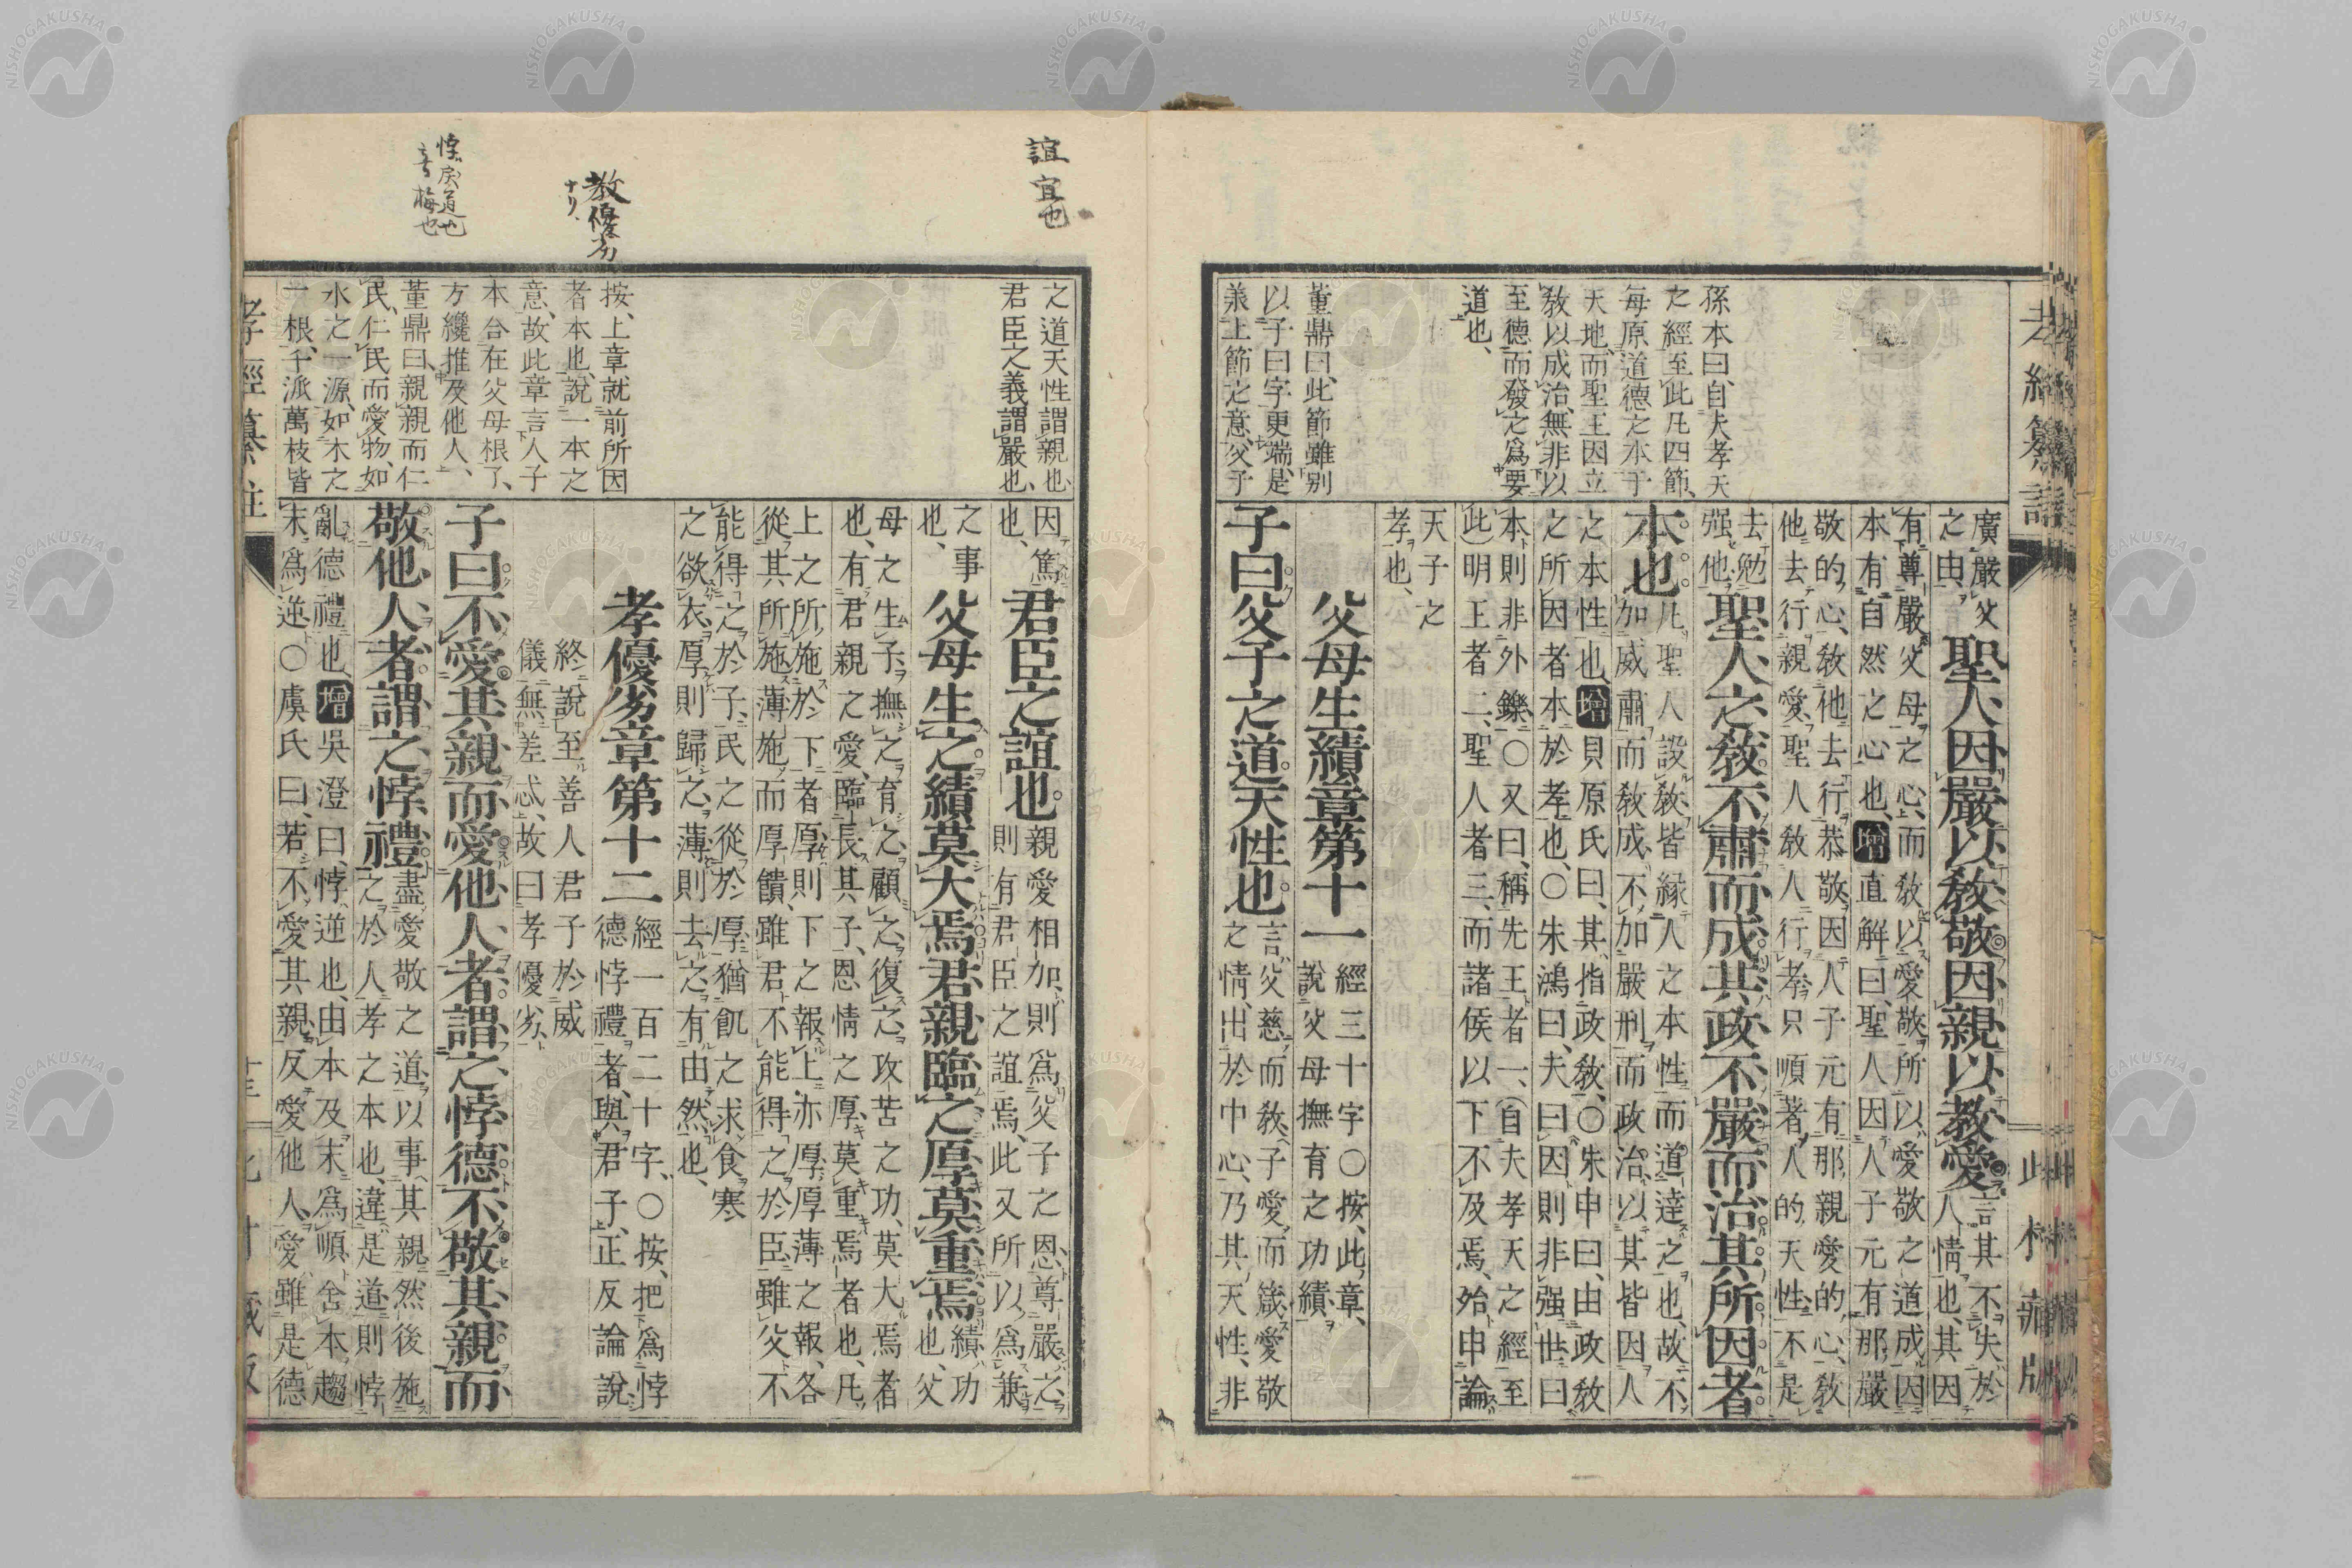 孫本曰、自夫孝天
之經至此凡四節、
毎原道德之本于
天地、而聖王因立
敎以成治、無非以
至德而發之爲要
道也、
董鼎曰、此節雖別
以子曰字更端、是
蒹上節之意、父子
廣嚴父
之由、
聖人因嚴以敎敬因親以教愛
言其不失於
人情也、其因
有尊嚴父母之心、而敎以愛敬所以愛敬之道成因
本有自然之心也、增直解曰、聖人因人子元有那嚴
敬的心、敎他去行恭敬因人子元有那親愛的心、敎
他去行親愛、聖人敎人行孝只順著人的天性、不是
去勉
强他
聖人之敎不肅而成其政不嚴而治其所因者
本也
凡聖人設敎、皆緣人之本性而道達之也、故不
加威肅而敎成、不加嚴刑而政治、以其皆因人
之本性也、增貝原氏曰、其、指政敎、○朱申曰、由政敎
之所因者本於孝也、○朱鴻曰、夫曰因則非强世、曰
本則非外鑠、○又曰、稱先王者一、自夫孝天之經至
此明王者二、聖人者三、而諸侯以下不及焉、始申論
天子之
孝也、
父母生績章第十一
經三十字○按、此章、
說父母撫育之功績、
子曰父子之道天性也
言父慈而敎、子愛而箴、愛敬
之情、出於中心、乃其天性、非
誼宜也
教優劣
ナリ
悖戾道也
之道天性謂親也、
君臣之義謂嚴也、
按、上章就前所因
者本也、說一本之
意、故此章言人子
本合在父母根了、
方纔推及他人、
董鼎曰、親親而仁
民、仁民而愛物、如
水之一源、如木之
一根、千派萬枝皆
因篤
也、
君臣之誼也
親愛相加、則爲父子之恩、尊嚴之、
則有君臣之誼焉、此又所以爲兼
之事
也、
父母生之績莫大焉君親臨之厚莫重焉
績功
也、父
母之生子、撫之育之、顧之復之、攻苦之功、莫大焉者
也、有君親之愛、臨長其子、恩情之厚、莫重焉者也、凡
上之所施於下者厚、則下之報上亦厚、厚薄之報、各
從其所施、薄施而厚饋、雖君不能得之於臣、雖父不
能得之於子、民之從於厚、猶飢之求食寒
之欲衣、厚則歸之、薄則去之、有由然也、
孝優劣章第十二
經一百二十字、○按、把爲悖
德悖禮者、與君子、正反論說、
終說至善人君子於威
儀無差忒、故曰孝優劣、
子曰不愛其親而愛他人者謂之悖德不敬其親而
敬他人者謂之悖禮
盡愛敬之道、以事其親、然後施
之於人、孝之本也、違是道、則悖
亂德禮也、增吳澄曰、悖、逆也、由本及末爲順、舍本趨
末爲逆、○虞氏曰、若不愛其親、反愛他人、愛雖是德